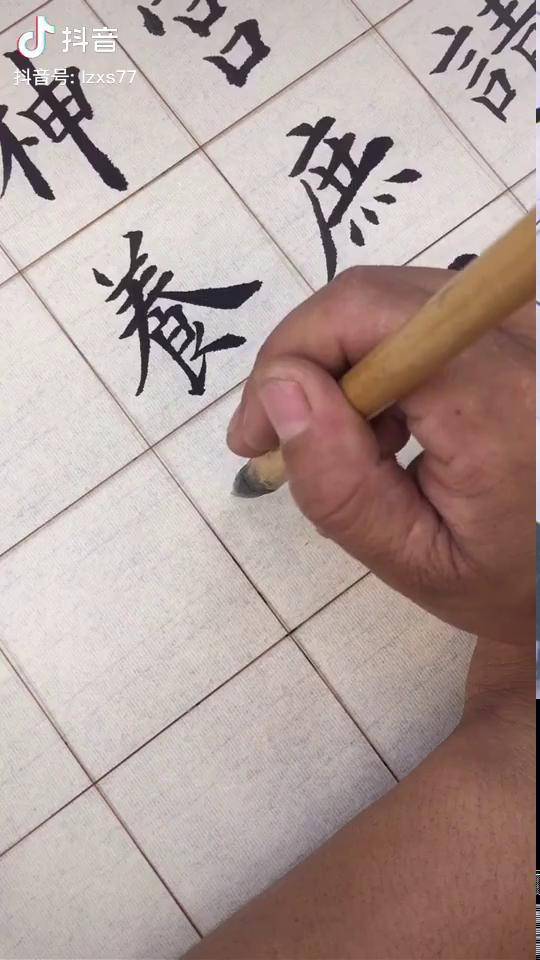 抖音
抖音号: lzxs77
請
宮庶
神養